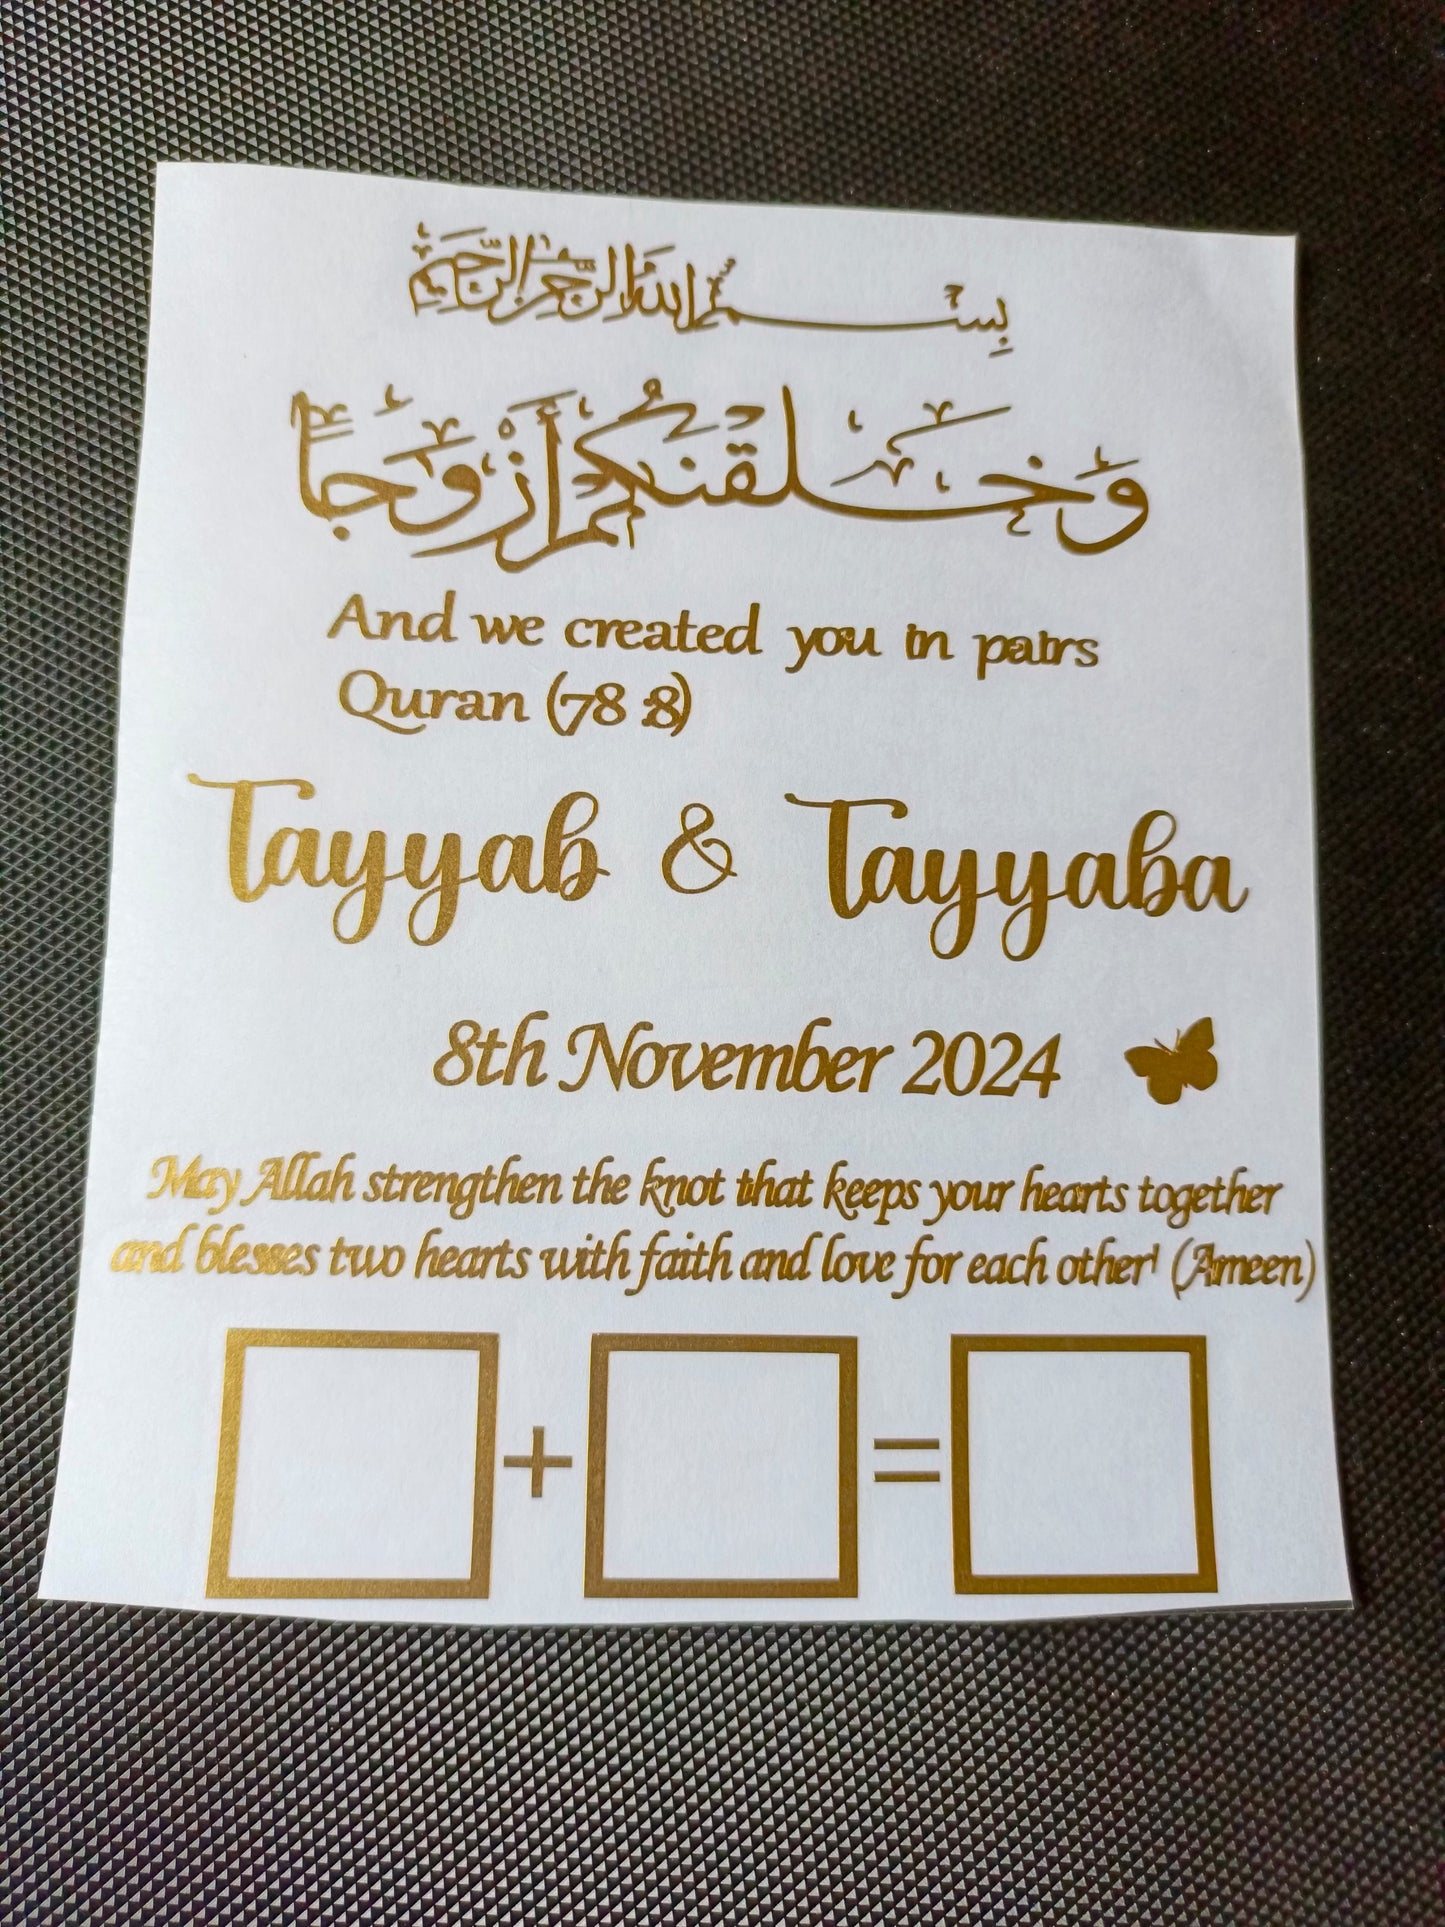 بِسْمِ اللهِ الرَّحْمٰنِ الرَّحِيْمِ
وَخَلَقْنَٰكُمْ أَزْوَٰجًا
And we created you in pairs
Quran (78:8)
Tayyab & Tayyaba
8th November 2024
May Allah strengthen the knot that keeps your hearts together
and blesses two hearts with faith and love for each other' (Ameen)
+ =